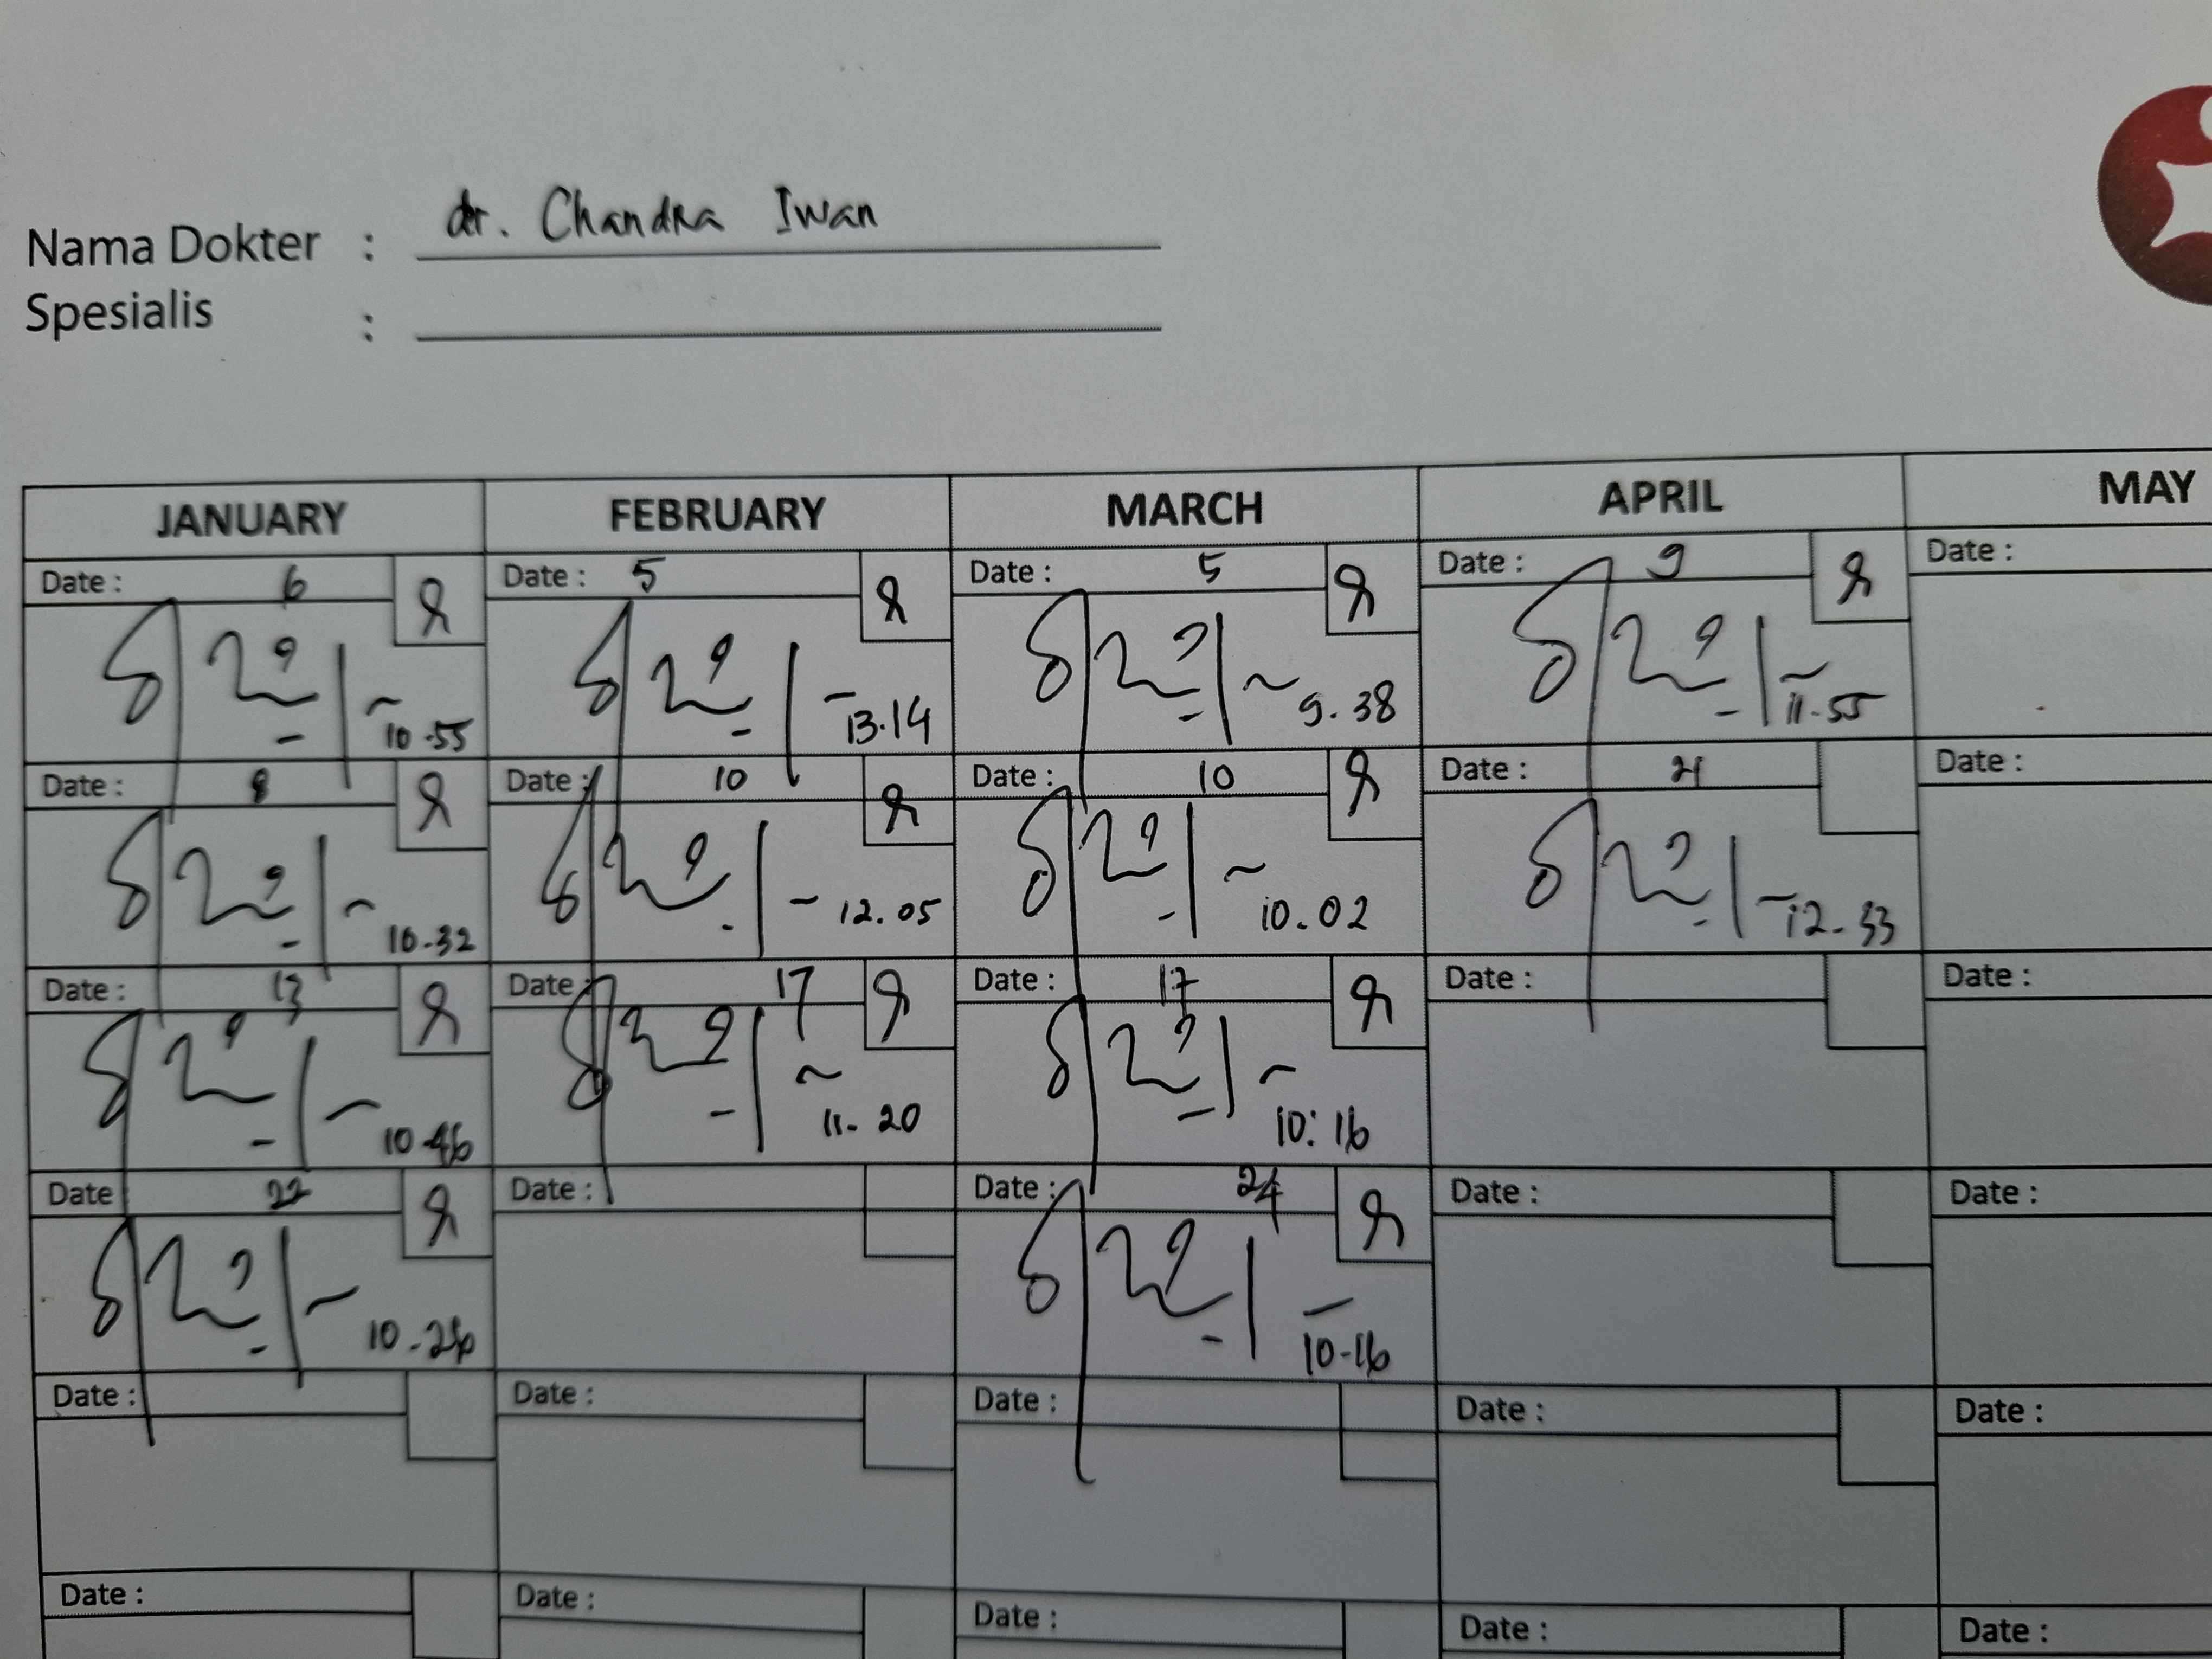 Nama Dokter : dr. Chandra Iwan
Spesialis :
JANUARY FEBRUARY MARCH APRIL MAY
Date : 6 Date : 5 Date : 5 Date : 9 Date :
10.55 13.14 9.38 11.55
Date : 8 Date : 10 Date : 10 Date : 21 Date :
10.32 12.05 10.02 12.33
Date : 13 Date : 17 Date : 17 Date : Date :
10.46 11.20 10:16
Date : 22 Date : Date : 24 Date : Date :
10.26 10.16
Date : Date : Date : Date : Date :
Date : Date : Date : Date : Date :